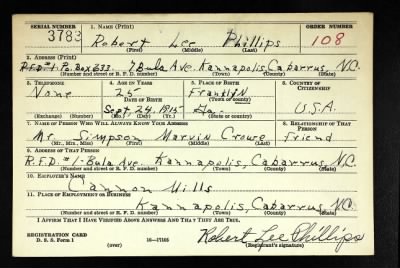 SERIAL NUMBER 1. NAME (Print) ORDER NUMBER
3783 Robert Lee Phillips 108
(First) (Middle) (Last)
2. ADDRESS (Print)
R.F.D. #1. Po. Box 233. Bula Ave. Kannapolis, Cabarrus, N.C.
(Number and street or R. F. D. number) (Town) (County) (State)
3. TELEPHONE 4. AGE IN YEARS 5. PLACE OF BIRTH 6. COUNTRY OF CITIZENSHIP
None 25 Franklin
DATE OF BIRTH (Town or county)
Sept 24, 1915 Ga. U.S.A.
(Exchange) (Number) (Mo.) (Day) (Yr.) (State or country)
7. NAME OF PERSON WHO WILL ALWAYS KNOW YOUR ADDRESS 8. RELATIONSHIP OF THAT PERSON
Mr. Simpson Marvin Crowe friend
(Mr., Mrs., Miss) (First) (Middle) (Last)
9. ADDRESS OF THAT PERSON
R.F.D. #1-Bula Ave. Kannapolis, Cabarrus, N.C.
(Number and street or R. F. D. number) (Town) (County) (State)
10. EMPLOYER'S NAME
Cannon Mills
11. PLACE OF EMPLOYMENT OR BUSINESS
Kannapolis, Cabarrus, N.C.
(Number and street or R. F. D. number) (Town) (County) (State)
I AFFIRM THAT I HAVE VERIFIED ABOVE ANSWERS AND THAT THEY ARE TRUE.
REGISTRATION CARD Robert Lee Phillips
D. S. S. Form 1 (over) 16—17105 (Registrant's signature)